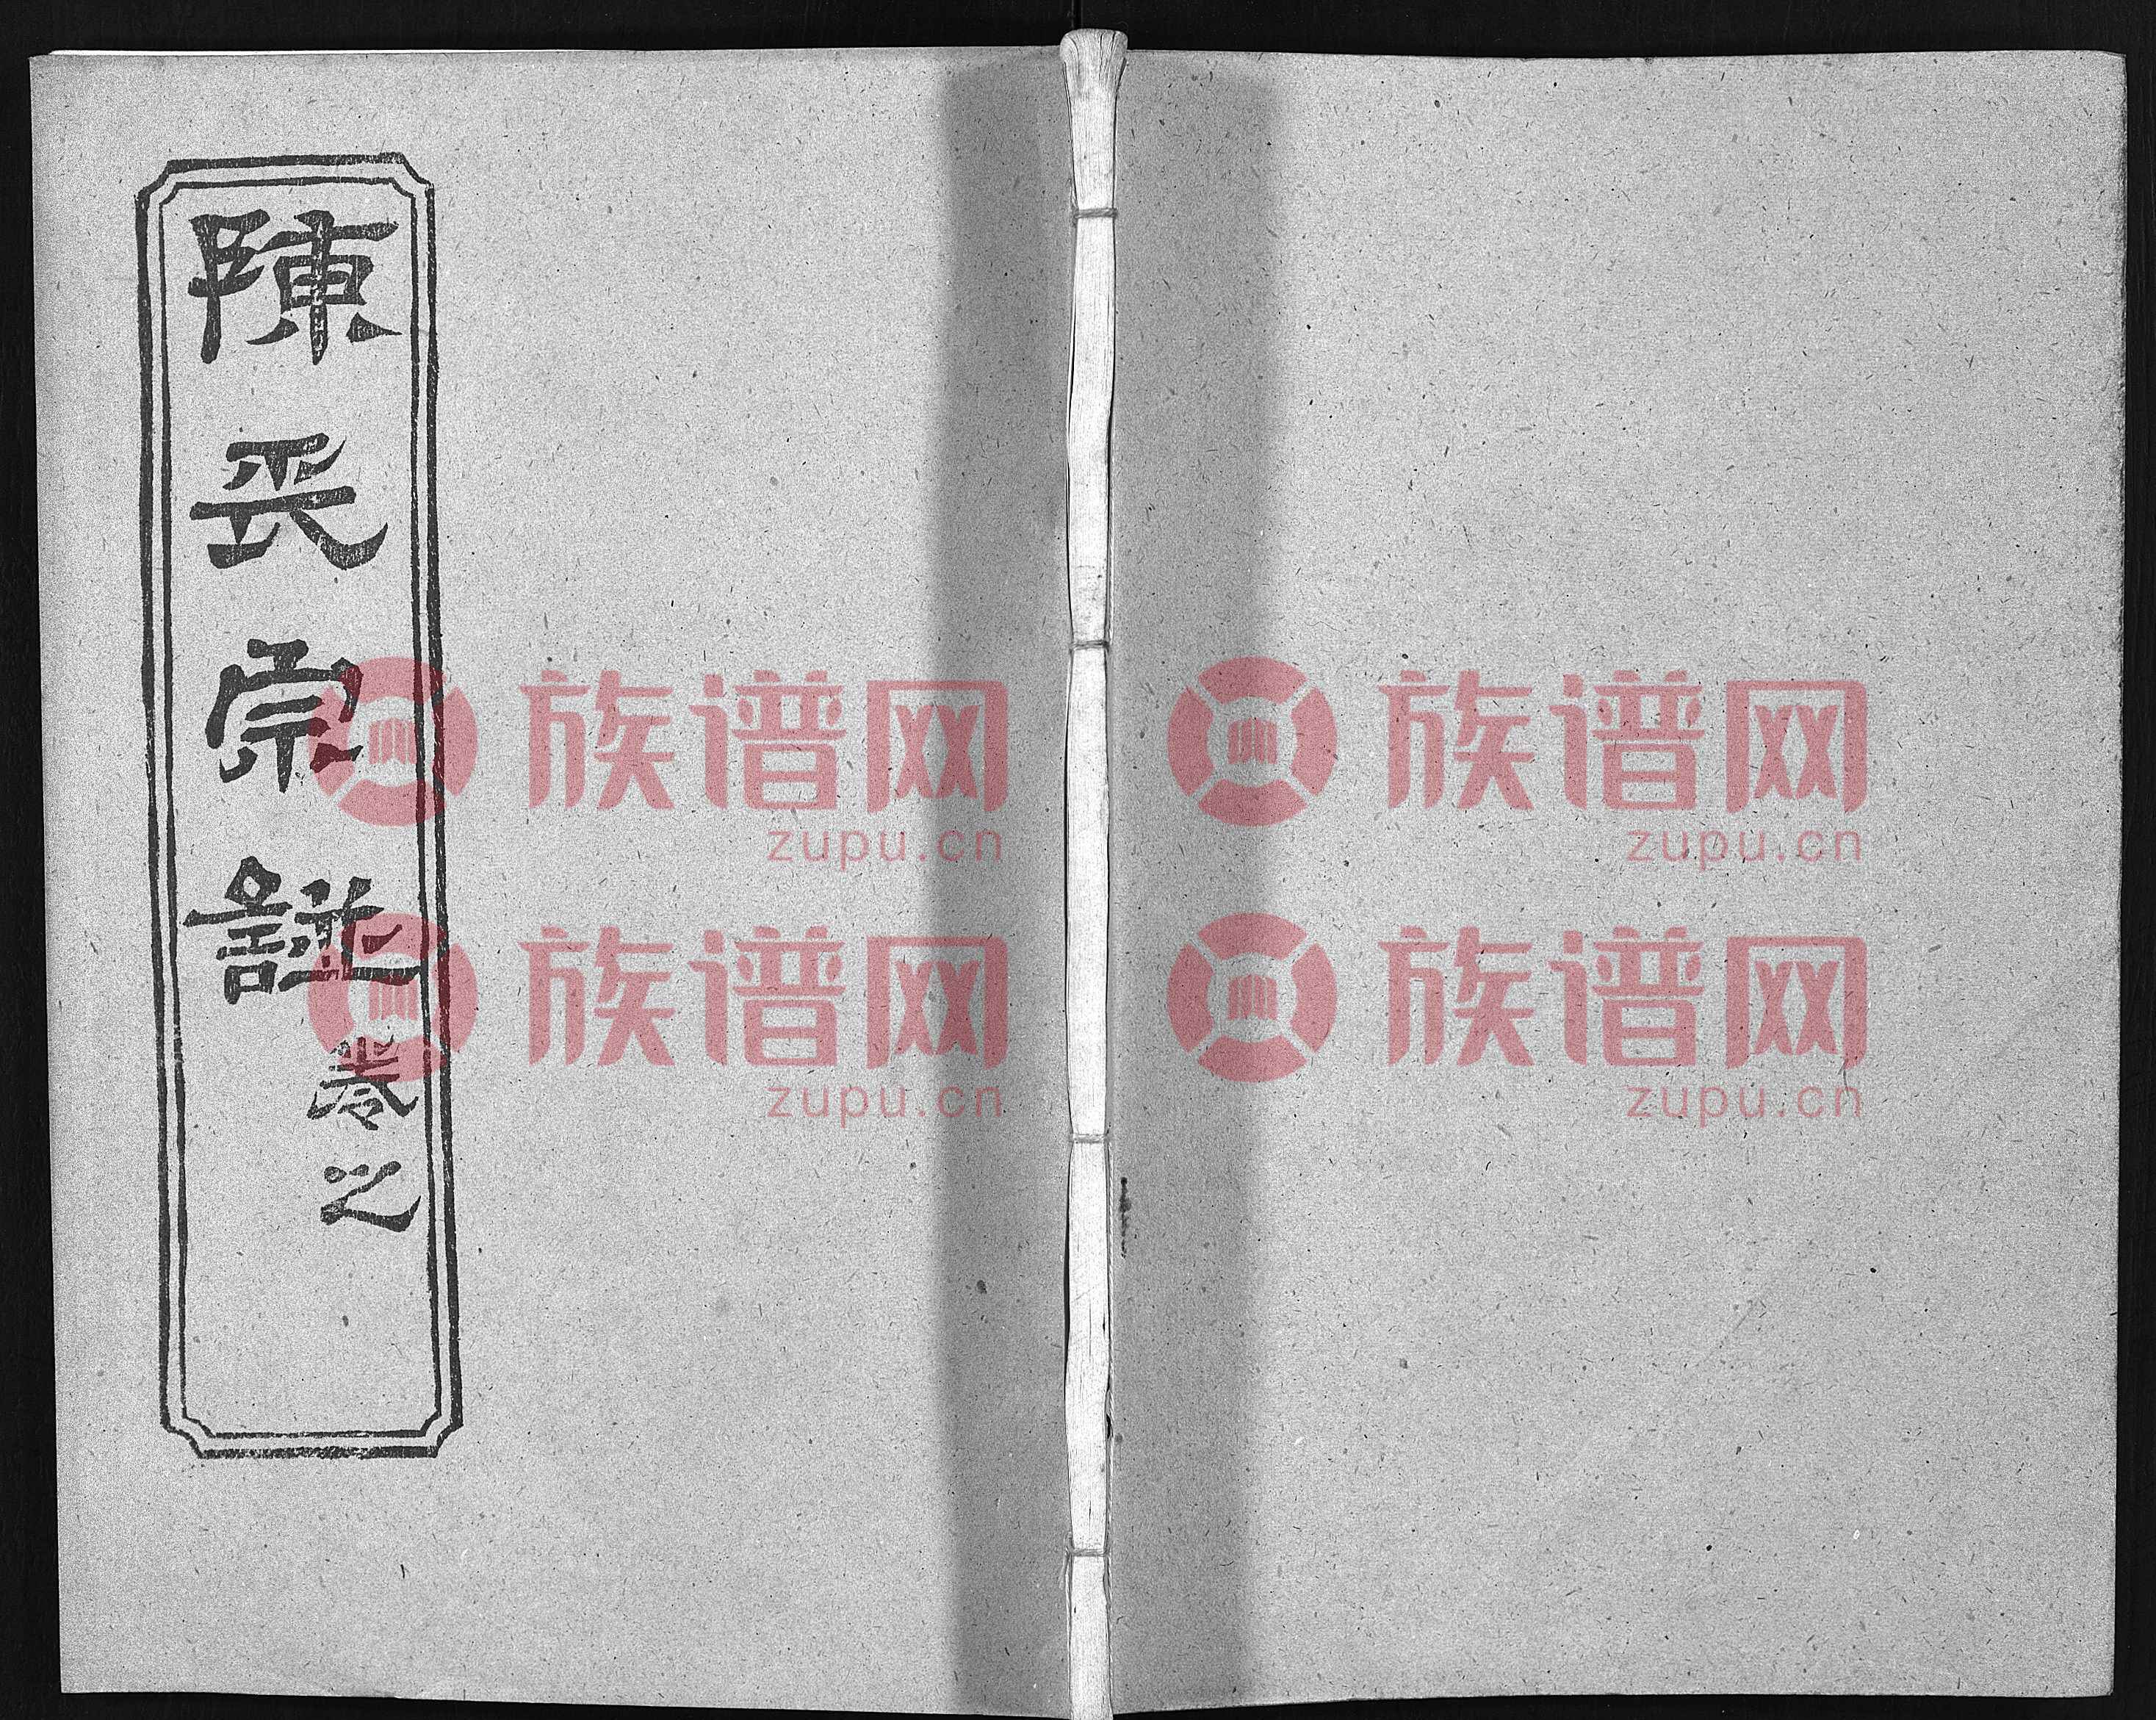 陳氏宗譜
卷之
族谱网
zupu.cn
族谱网
zupu.cn
族谱网
zupu.cn
族谱网
zupu.cn